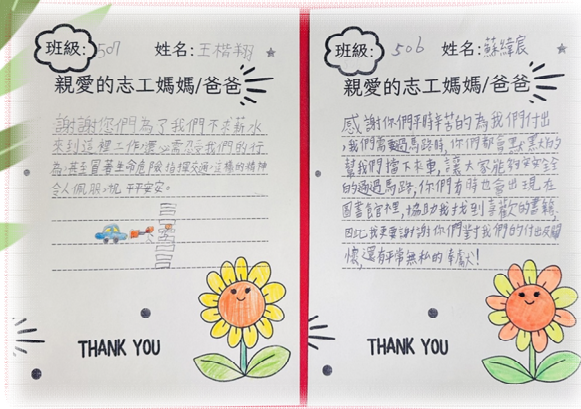 班級: 507 姓名: 王楷翔
親愛的志工媽媽/爸爸
謝謝您們為了我們不求薪水
來到這裡工作,還必需忍受我們的行
為,甚至冒著生命危險指揮交通,這樣的精神
令人佩服,祝 平平安安。
THANK YOU
班級: 506 姓名: 蘇緯宸
親愛的志工媽媽/爸爸
感謝你們平時辛苦的為我們付出
,我們需要過馬路時,你們都會
幫我們擋下來車,讓大家能安全
的通過馬路,你們有時也會出現在
圖書館裡,協助我找到喜歡的書籍,
因此我更要謝謝你們對我們的付出及關
懷,還有平常無私的奉獻!
THANK YOU